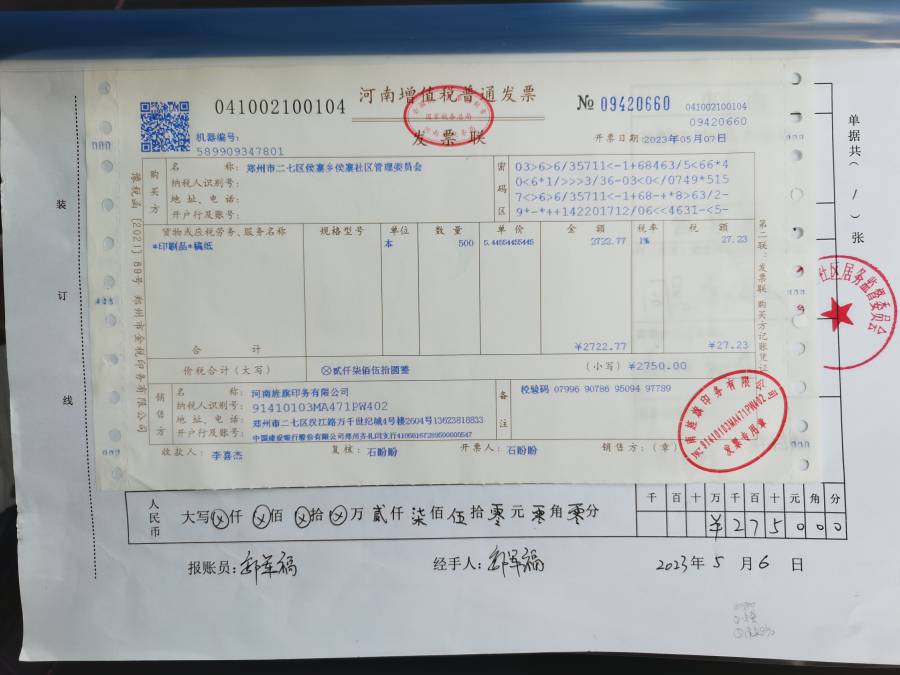 河南增值税普通发票
041002100104
№ 09420660
041002100104
09420660
国家税务总局
发票联
机器编号:
589909347801
开票日期:2023年05月07日
购买方
名称:郑州市二七区侯寨乡侯寨社区管理委员会
纳税人识别号:
地址、电话:
开户行及账号:
密码区
03>6>6/35711<-1+68463/5<66*4
0<6*1/>>>3/36-03<0</0749*515
7<>6>6/35711<-1+68-+*8>63/2-
9*-*++142201712/06<<4631-<5-
货物或应税劳务、服务名称 规格型号 单位 数量 单价 金额 税率 税额
*印刷品*稿纸 本 500 5.44554455445 2722.77 1% 27.23
合计 ¥2722.77 ¥27.23
价税合计(大写) ⊗贰仟柒佰伍拾圆整 (小写)¥2750.00
销售方
名称:河南旌旗印务有限公司
纳税人识别号:91410103MA471PW402
地址、电话:郑州市二七区汉江路万千世纪城4号楼2604号13623818833
开户行及账号:中国建设银行股份有限公司郑州齐礼闫支行41050167289500000547
备注
校验码 07996 90786 95094 97789
收款人:李喜杰 复核:石盼盼 开票人:石盼盼 销售方:(章)
豫税函[2021]89号 郑州市金税印务有限公司
第二联:发票联 购买方记账凭证
91410103MA471PW402
发票专用章
单据共(/)张
社区居务监督委员会
装
订
线
人民币
大写⊗仟⊗佰⊗拾⊗万贰仟柒佰伍拾零元零角零分
千百十万千百十元角分
¥275000
报账员:
经手人:
2023年5月6日